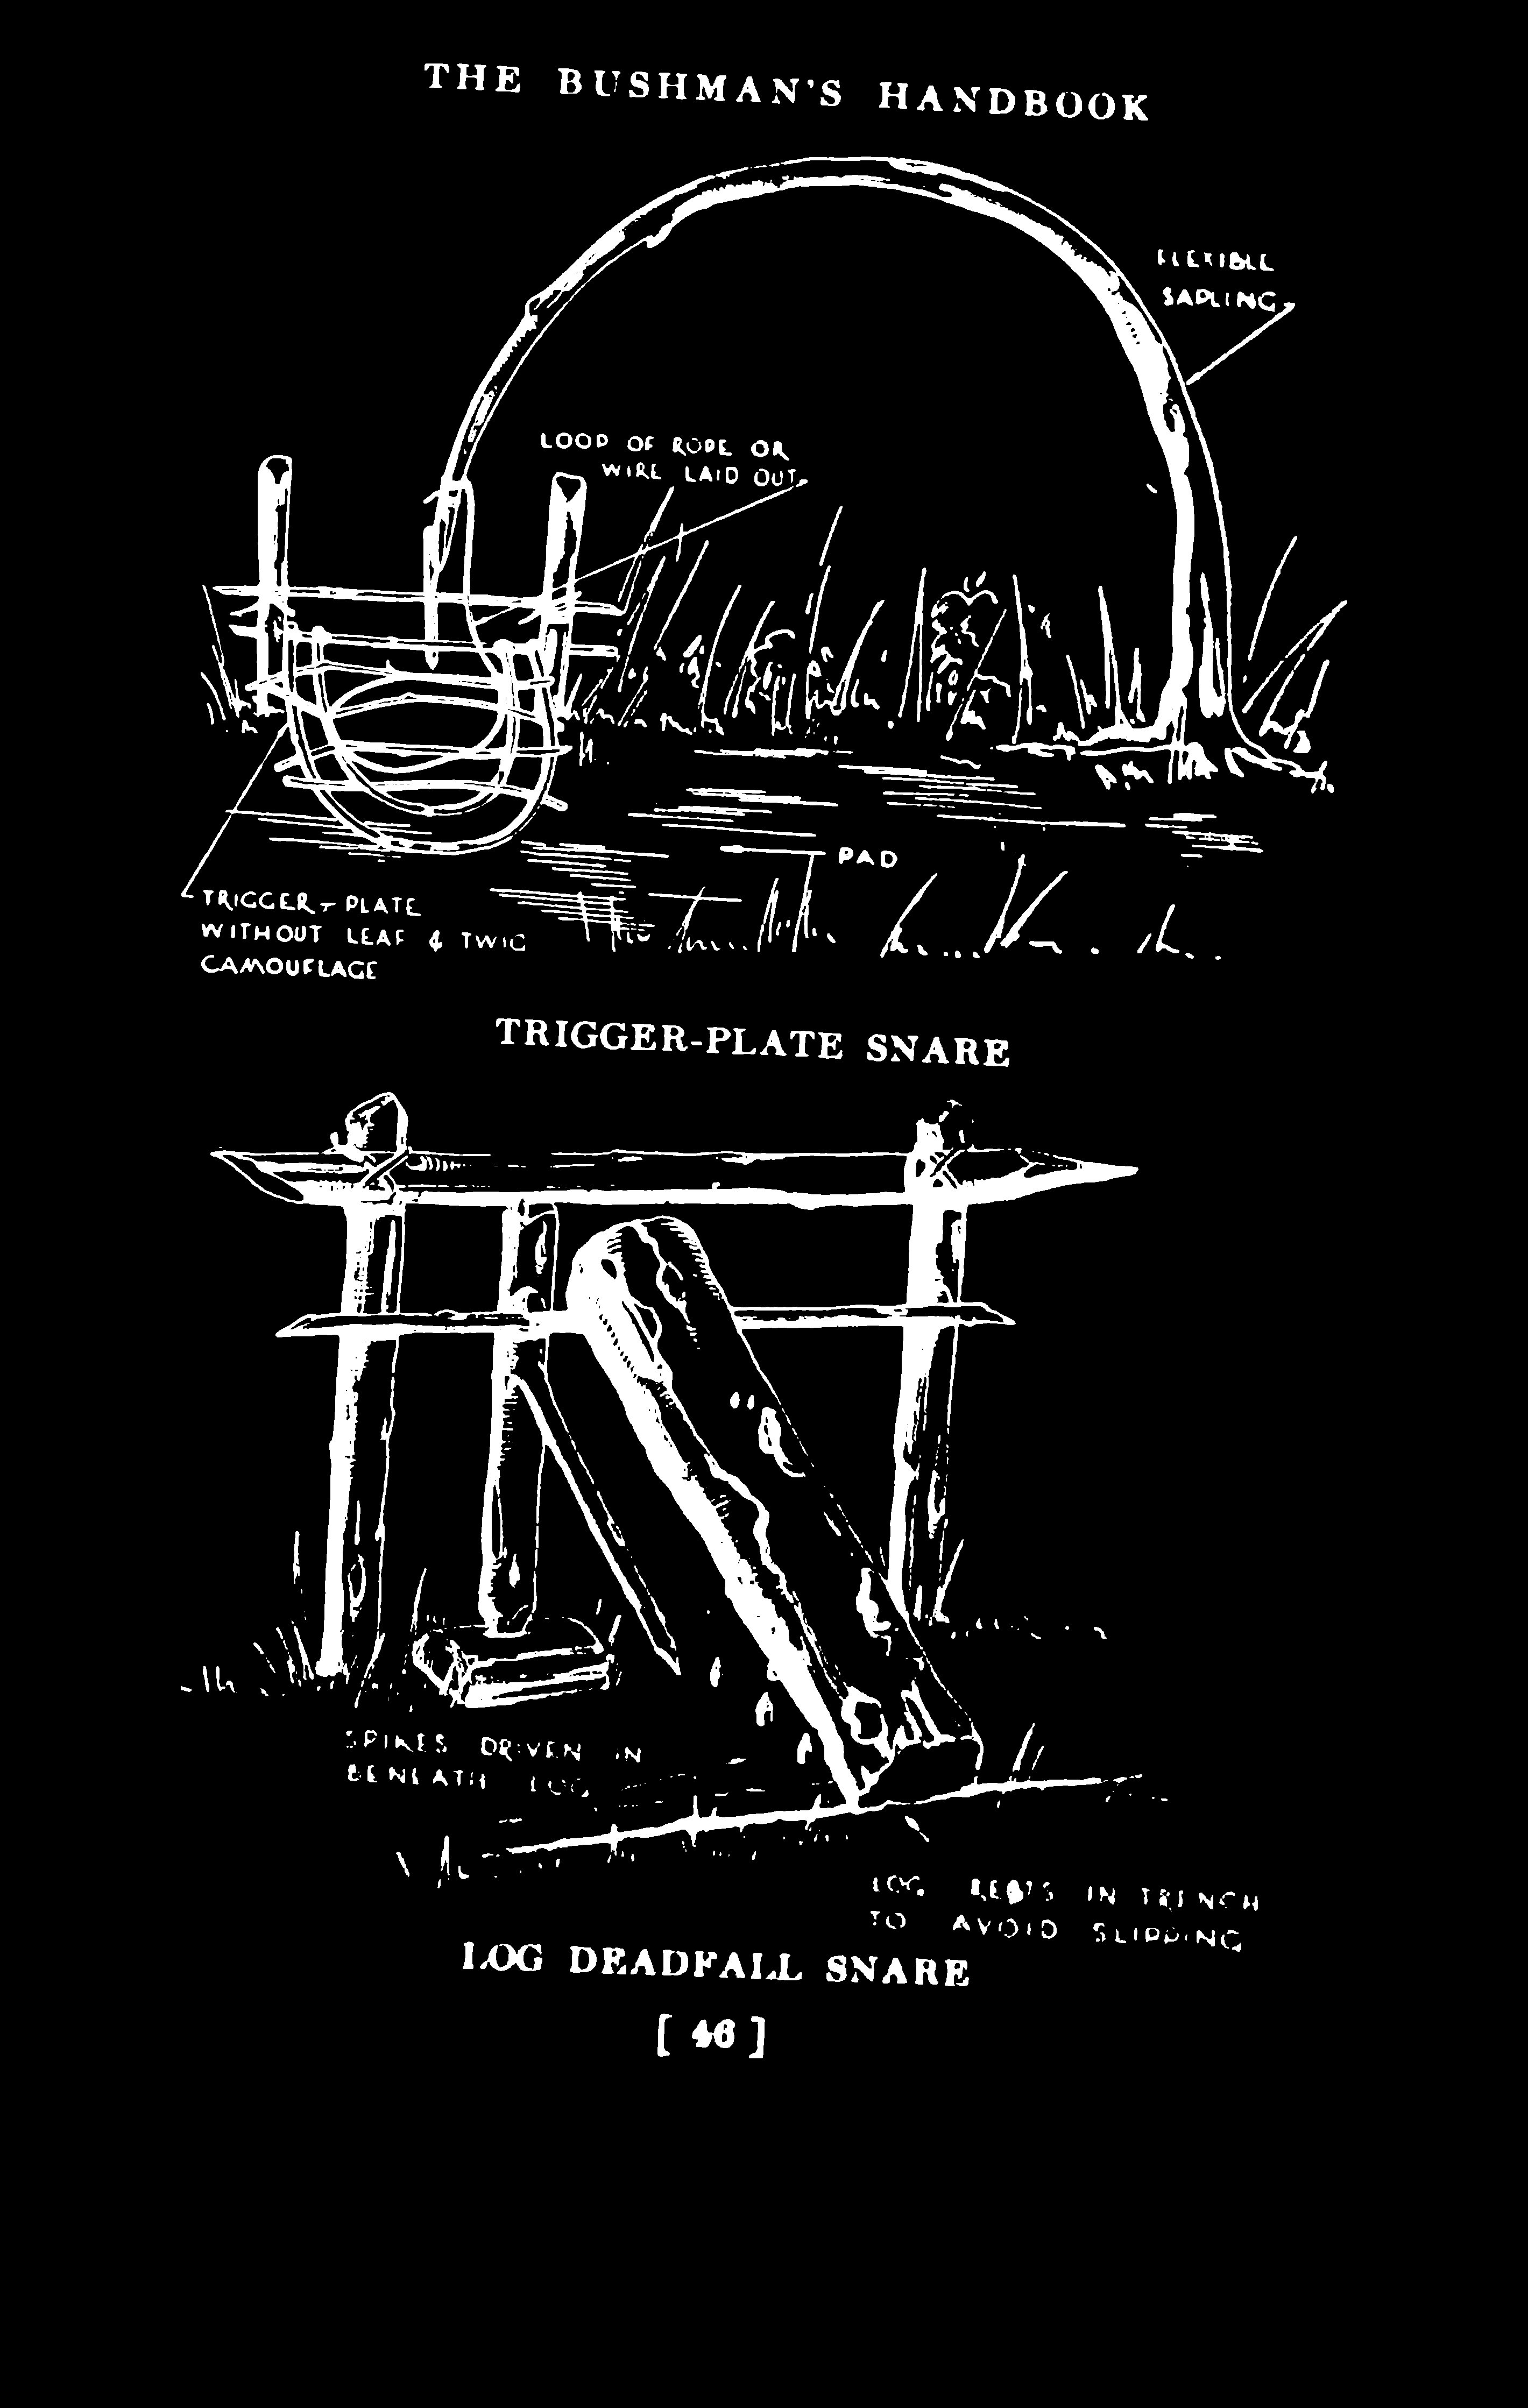 THE BUSHMAN'S HANDBOOK
FLEXIBLE
SAPLING
LOOP OF ROPE OR
WIRE LAID OUT
PAD
TRIGGER-PLATE
WITHOUT LEAF & TWIG
CAMOUFLAGE
TRIGGER-PLATE SNARE
SPIKES DRIVEN IN
BENEATH LOG
LOG RESTS IN TRENCH
TO AVOID SLIPPING
LOG DEADFALL SNARE
[ 46 ]